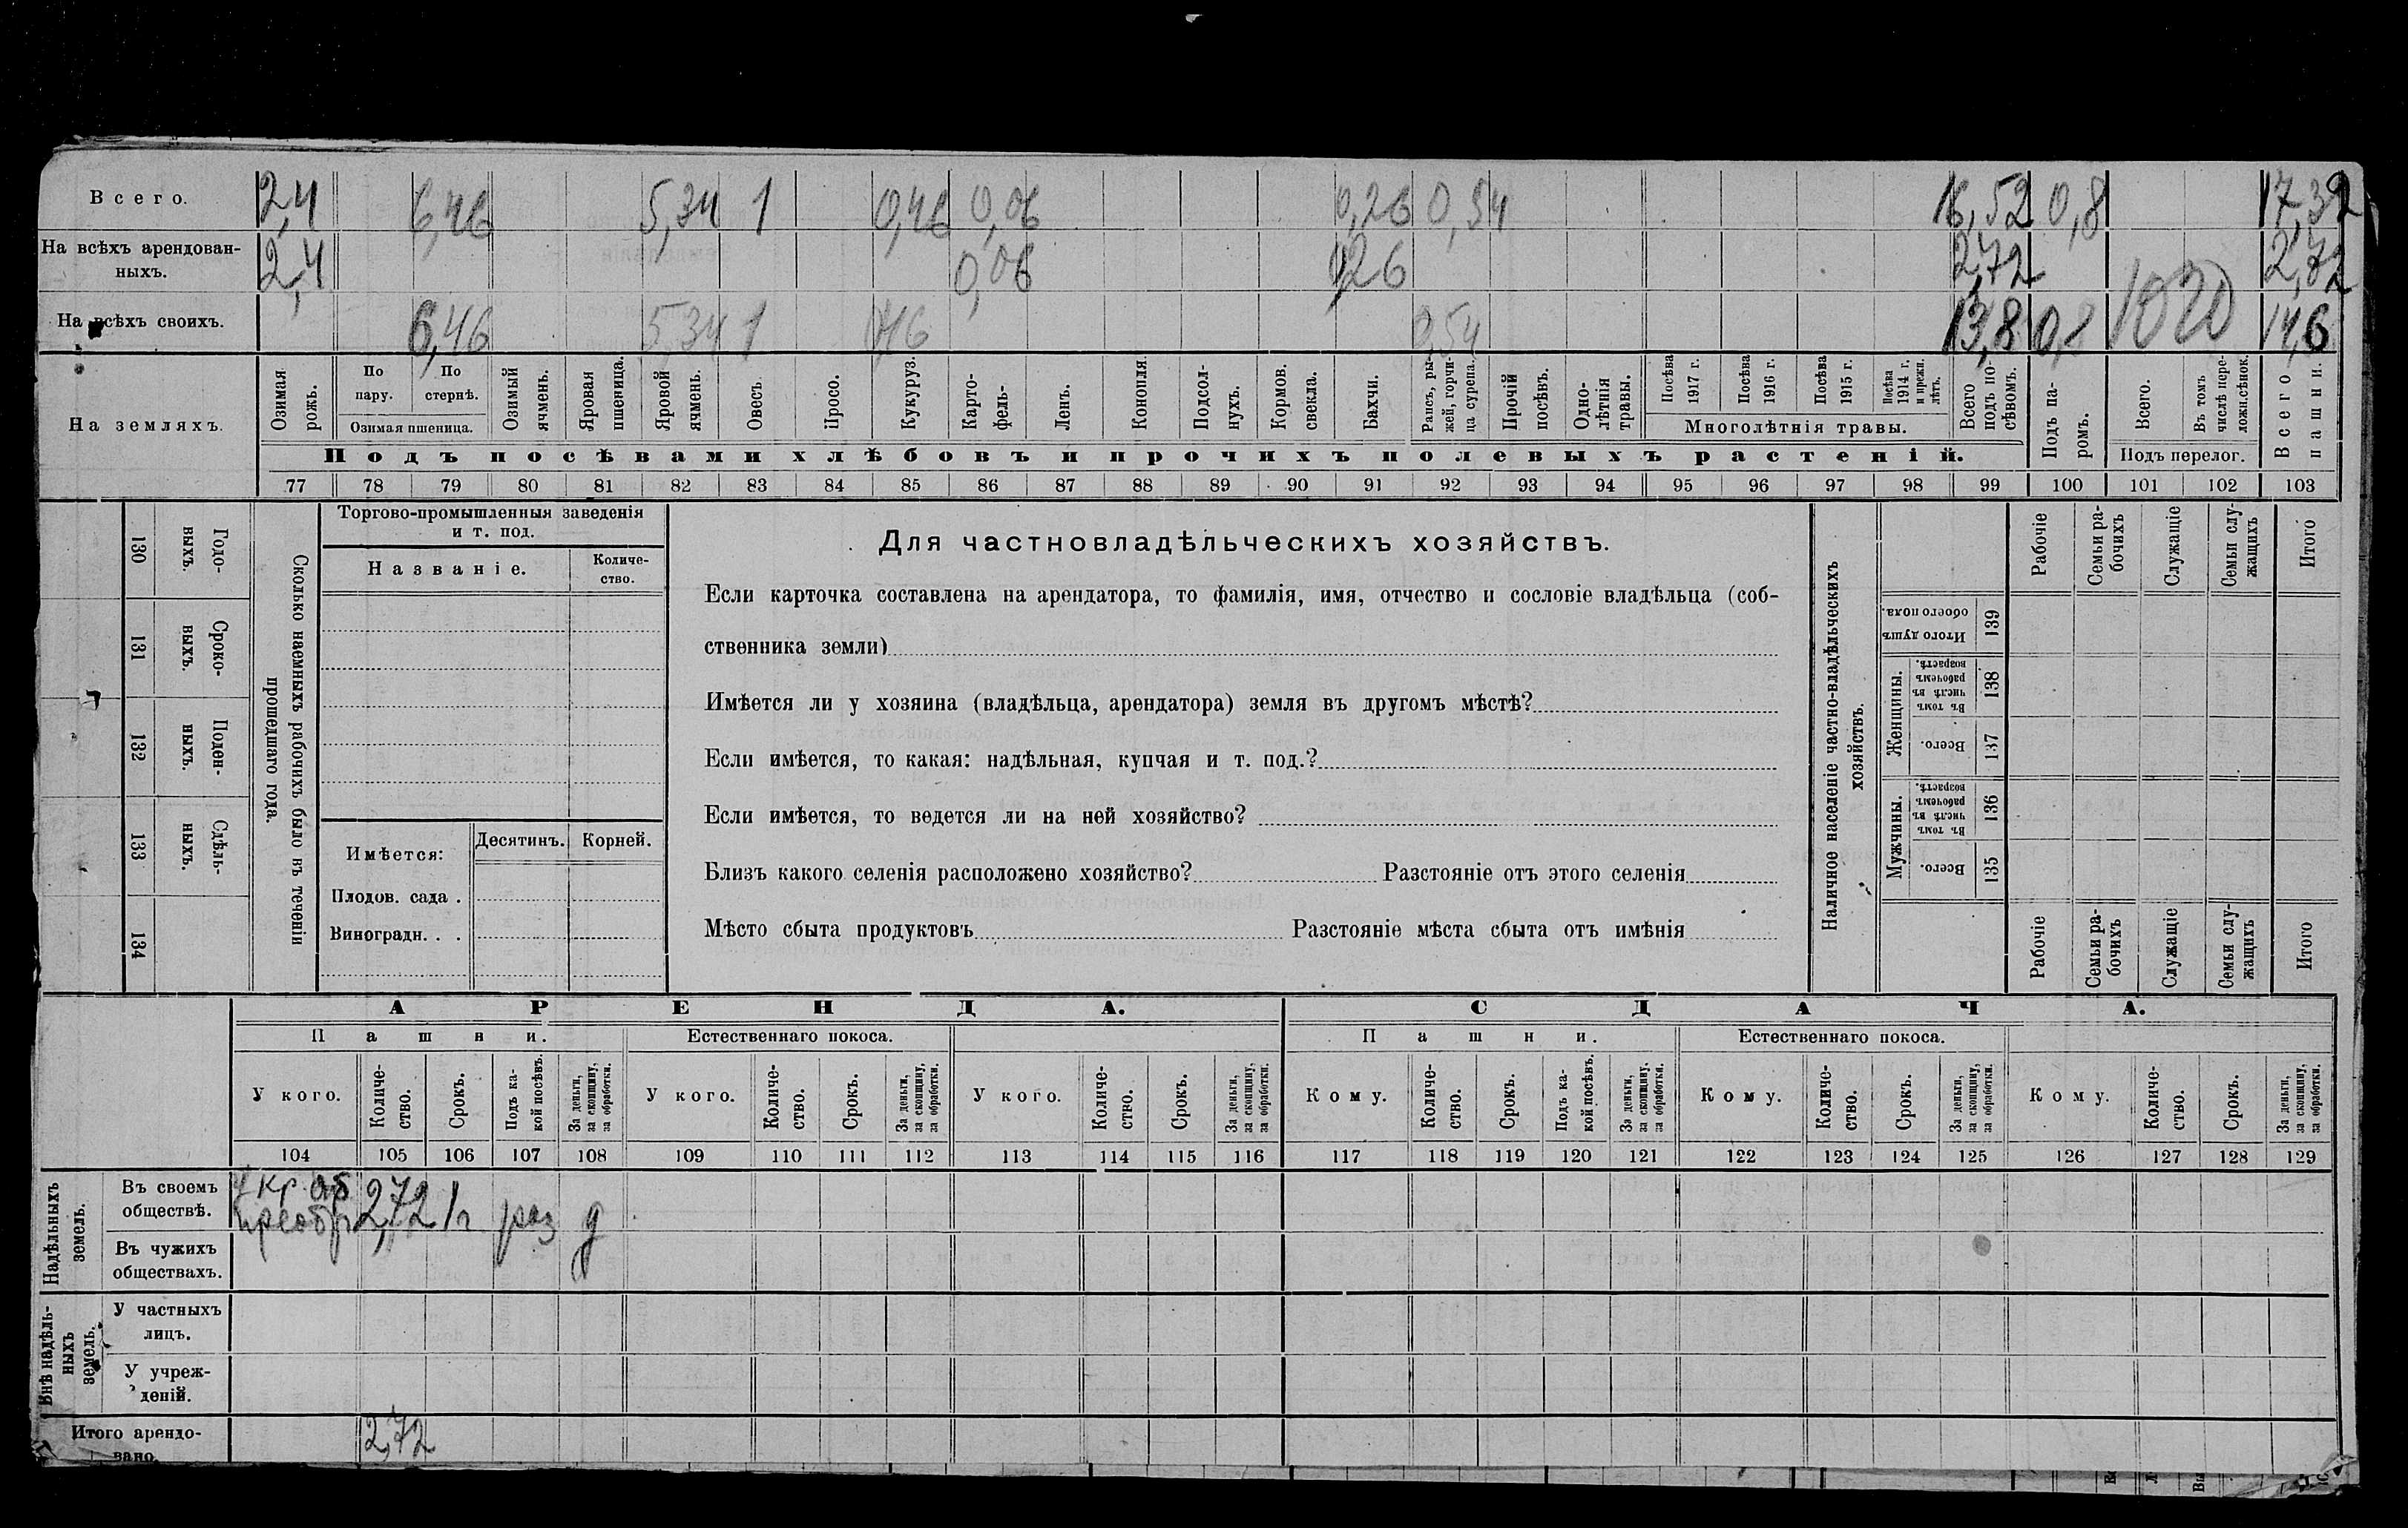 Всего. 2,4 6,46 5,34 1 0,46 0,06 0,26 0,54 16,52 0,8 17,32
На всѣхъ арендованныхъ. 2,4 0,06 0,26 2,72 2,72
На всѣхъ своихъ. 6,46 5,34 1 0,46 0,54 13,8 0,8 1020 14,6
На земляхъ.
Озимая рожь.
По пару.
По стернѣ.
Озимая пшеница.
Озимый ячмень.
Яровая пшеница.
Яровой ячмень.
Овесъ.
Просо.
Кукуруз.
Картофель.
Ленъ.
Конопля.
Подсолнухъ.
Кормов. свекла.
Бахчи.
Рапсъ, рыжей, горчица сурепа.
Прочій посѣвъ.
Однолѣтнія травы.
Посѣва 1917 г.
Посѣва 1916 г.
Посѣва 1915 г.
Посѣва 1914 г. и прежн. лѣтъ.
Многолѣтнія травы.
Всего подъ посѣвомъ.
Подъ паромъ.
Всего.
Въ томъ числѣ перелож. сѣнок.
Подъ перелог.
Всего пашни.
Подъ посѣвами хлѣбовъ и прочихъ полевыхъ растеній.
77 78 79 80 81 82 83 84 85 86 87 88 89 90 91 92 93 94 95 96 97 98 99 100 101 102 103
130 Годовыхъ.
131 Сроковыхъ.
132 Поденныхъ.
133 Сдѣльныхъ.
134
Сколько наемныхъ рабочихъ было въ теченіи прошедшаго года.
Торгово-промышленныя заведенія
и т. под.
Названіе.
Количество.
Имѣется:
Десятинъ. Корней.
Плодов. сада .
Виноградн. . .
Для частновладѣльческихъ хозяйствъ.
Если карточка составлена на арендатора, то фамилія, имя, отчество и сословіе владѣльца (соб-
ственника земли)
Имѣется ли у хозяина (владѣльца, арендатора) земля въ другомъ мѣстѣ?
Если имѣется, то какая: надѣльная, купчая и т. под.?
Если имѣется, то ведется ли на ней хозяйство?
Близъ какого селенія расположено хозяйство? Разстояніе отъ этого селенія
Мѣсто сбыта продуктовъ Разстояніе мѣста сбыта отъ имѣнія
Наличное населеніе частно-владѣльческихъ хозяйствъ.
Рабочіе
Семьи рабочихъ
Служащіе
Семьи служащихъ
Итого
Итого душъ обоего пола. 139
Женщины.
Въ томъ числѣ въ рабочемъ возрастѣ. 138
Всего. 137
Мужчины.
Въ томъ числѣ въ рабочемъ возрастѣ. 136
Всего. 135
Рабочіе
Семьи рабочихъ
Служащіе
Семьи служащихъ
Итого
АРЕНДА. СДАЧА.
Пашни. Естественнаго покоса. Пашни. Естественнаго покоса.
У кого. Количество. Срокъ. Подъ какой посѣвъ. За деньги, за скопщину, за обработки.
У кого. Количество. Срокъ. За деньги, за скопщину, за обработки.
У кого. Количество. Срокъ. За деньги, за скопщину, за обработки.
Кому. Количество. Срокъ. Подъ какой посѣвъ. За деньги, за скопщину, за обработки.
Кому. Количество. Срокъ. За деньги, за скопщину, за обработки.
Кому. Количество. Срокъ. За деньги, за скопщину, за обработки.
104 105 106 107 108 109 110 111 112 113 114 115 116 117 118 119 120 121 122 123 124 125 126 127 128 129
Надѣльныхъ земель.
Въ своемъ обществѣ. у кр. 2,72 1 г раз д
Въ чужихъ обществахъ.
Внѣ надѣльныхъ земель.
У частныхъ лицъ.
У учрежденій.
Итого арендовано. 2,72